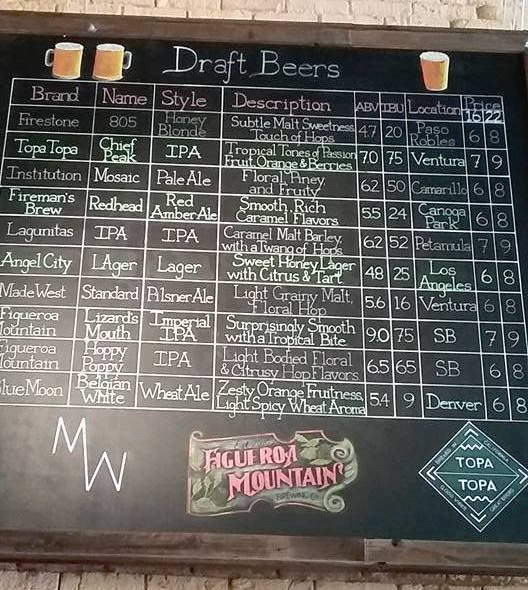 Draft Beers
Brand Name Style Description ABV IBU Location Price 16 22
Firestone 805 Honey Blonde Subtle Malt Sweetness, Touch of Hops 4.7 20 Paso Robles 6 8
Topa Topa Chief Peak IPA Tropical Tones of Passion Fruit, Orange & Berries 7.0 75 Ventura 7 9
Institution Mosaic Pale Ale Floral, Piney and Fruity 6.2 50 Camarillo 6 8
Fireman's Brew Redhead Red Amber Ale Smooth, Rich Caramel Flavors 5.5 24 Canoga Park 6 8
Lagunitas IPA IPA Caramel Malt Barley, with a Twang of Hops 6.2 52 Petamula 7 9
Angel City LAger Lager Sweet Honey Lager with Citrus & Tart 4.8 25 Los Angeles 6 8
Made West Standard Pilsner Ale Light Grainy Malt, Floral Hop 5.6 16 Ventura 6 8
Figueroa Mountain Lizard's Mouth Imperial IPA Surprisingly Smooth with a Tropical Bite 9.0 75 SB 7 9
Figueroa Mountain Hoppy Poppy IPA Light Bodied Floral & Citrusy Hop Flavors 6.5 65 SB 6 8
Blue Moon Belgian White Wheat Ale Zesty Orange Fruitness, Light Spicy Wheat Aroma 5.4 9 Denver 6 8
MW
FIGUEROA
MOUNTAIN
BREWING CO
TOPA
TOPA